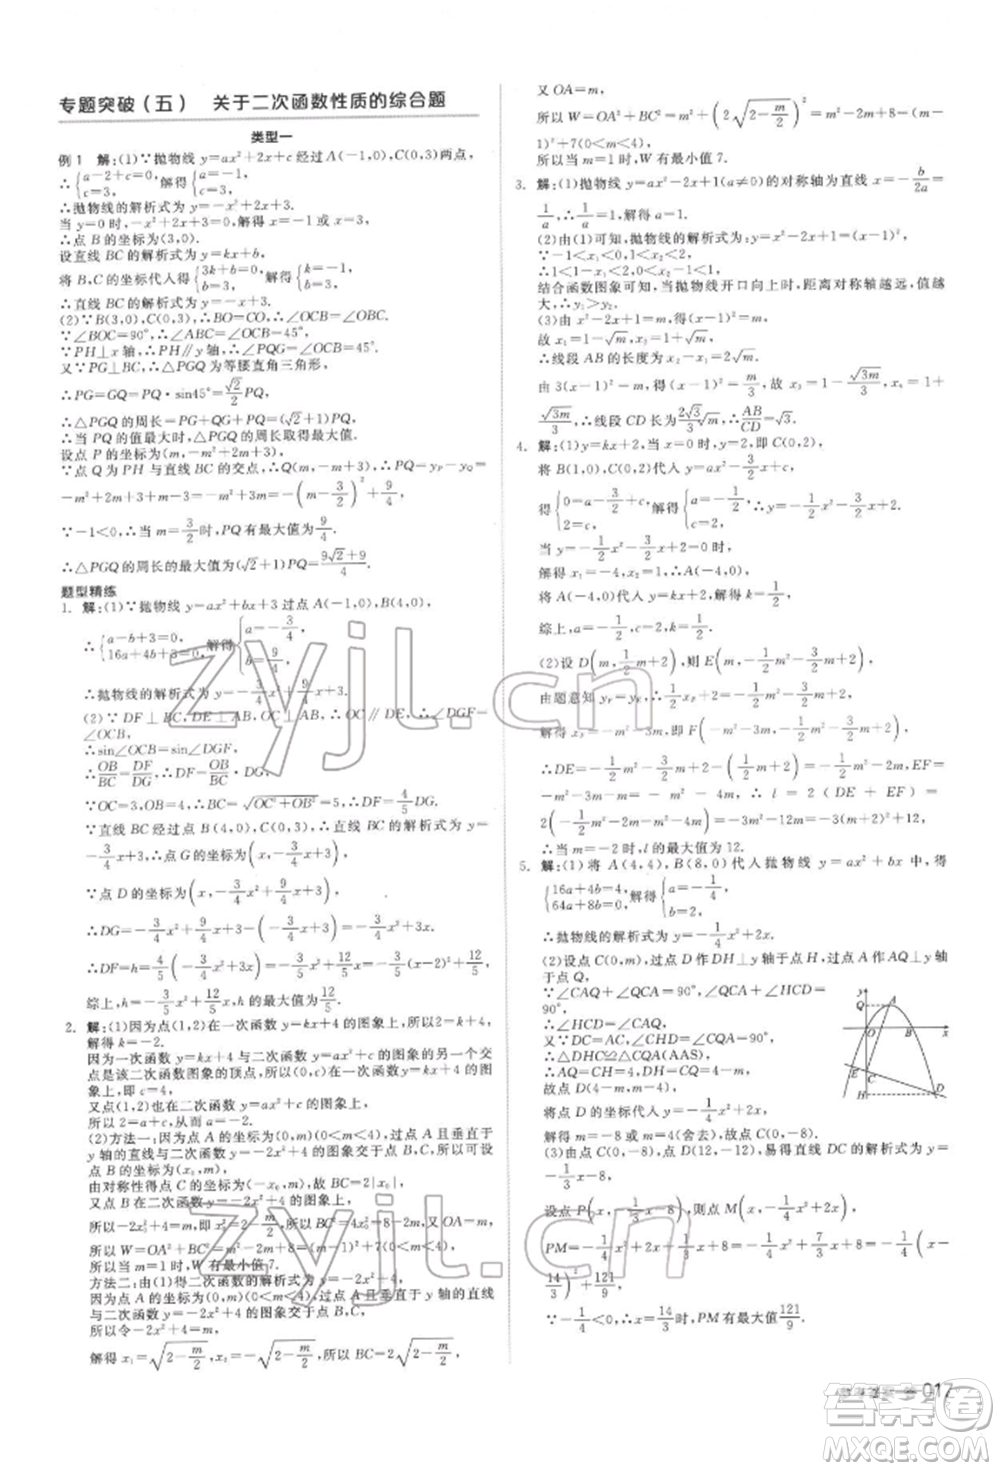 专题突破（五） 关于二次函数性质的综合题
类型一
例1 解:(1)∵抛物线 y=ax²+2x+c 经过 A(-1,0),C(0,3)两点,
∴{a-2+c=0, c=3, 解得{a=-1, c=3.
∴抛物线的解析式为 y=-x²+2x+3.
当 y=0 时,-x²+2x+3=0,解得 x=-1 或 x=3,
∴点 B 的坐标为(3,0).
设直线 BC 的解析式为 y=kx+b,
将 B,C 的坐标代入得{3k+b=0, b=3, 解得{k=-1, b=3.
∴直线 BC 的解析式为 y=-x+3.
(2)∵B(3,0),C(0,3),∴BO=CO,∴∠OCB=∠OBC.
∵∠BOC=90°,∴∠OBC=∠OCB=45°.
∵PH⊥x 轴,∴PH∥y 轴,∴∠PQG=∠OCB=45°.
又∵PG⊥BC,∴△PGQ 为等腰直角三角形,
∴PG=GQ=PQ·sin45°=√2/2 PQ,
∴△PGQ 的周长=PG+GQ+PQ=(√2+1)PQ,
∴当 PQ 的值最大时,△PGQ 的周长取得最大值.
设点 P 的坐标为(m,-m²+2m+3),
∵点 Q 为 PH 与直线 BC 的交点,∴Q(m,-m+3),∴PQ=y_P-y_Q=
-m²+2m+3-(-m+3)=-m²+3m=-(m-3/2)²+9/4,
∵-1<0,∴当 m=3/2时,PQ 有最大值为9/4.
∴△PGQ 的周长的最大值为(√2+1)×9/4=(9√2+9)/4.
题型精练
1. 解:(1)∵抛物线 y=ax²+bx+3 过点 A(-1,0),B(4,0),
∴{a-b+3=0, 16a+4b+3=0, 解得{a=-3/4, b=9/4,
∴抛物线的解析式为 y=-3/4x²+9/4x+3.
(2)∵DF⊥BC,DE⊥AB,∴DG∥OC,∴∠DGF=
∠OCB,
∴sin∠OCB=sin∠DGF.
∴OB/BC=DF/DG,∴DF=OB/BC·DG.
∵OB=4,OC=3,∴BC=√(OC²+OB²)=5,∴DF=4/5DG.
∵直线 BC 经过点 B(4,0),C(0,3),∴直线 BC 的解析式为 y=
-3/4x+3,∴点 G 的坐标为(x,-3/4x+3).
∵点 D 的坐标为(x,-3/4x²+9/4x+3),
∴DG=-3/4x²+9/4x+3-(-3/4x+3)=-3/4x²+3x,
∴DF=4/5(-3/4x²+3x)=-3/5x²+12/5x=-3/5(x-2)²+12/5,
综上,h=-3/5x²+12/5x,h 的最大值为12/5.
2. 解:(1)因为点(1,2)在一次函数 y=kx+4 的图象上,所以2=k+4,
解得 k=-2.
因为一次函数 y=kx+4 与二次函数 y=ax²+c 的图象的另一个交
点是该二次函数图象的顶点,所以该顶点坐标为(0,4),
即 c=4,
又点(1,2)也在二次函数 y=ax²+c 的图象上,
所以 2=a+c,从而 a=-2.
(2)方法一:因为点 A 的坐标为(0,m)(0<m<4),过点 A 且垂直于
y 轴的直线与二次函数 y=-2x²+4 的图象交于点 B,C,所以可设
点 B 的坐标为(x₀,m),
由对称性得点 C 的坐标为(-x₀,m),故 BC=2|x₀|,
又点 B 在二次函数 y=-2x²+4 的图象上,
所以-2x₀²+4=m,即 x₀²=2-m/2,从而 BC²=4x₀²=8-2m,
又 OA=m,
所以 W=OA²+BC²=m²-2m+8=(m-1)²+7(0<m<4),
所以当 m=1 时,W 有最小值 7.
方法二:由(1)得二次函数的解析式为 y=-2x²+4,
因为点 A 的坐标为(0,m)(0<m<4),过点 A 且垂直于 y 轴的直线
与二次函数 y=-2x²+4 的图象交于点 B,C,
所以令-2x²+4=m,
解得 x₁=√(2-m/2),x₂=-√(2-m/2),所以 BC=2√(2-m/2),
又 OA=m,
所以 W=OA²+BC²=m²+(2√(2-m/2))²=m²-2m+8=(m-
1)²+7(0<m<4),
所以当 m=1 时,W 有最小值 7.
3. 解:(1)抛物线 y=ax²-2x+1(a≠0)的对称轴为直线 x=-b/2a=
1/a,∴1/a=1,解得 a=1.
(2)由(1)可知,抛物线的解析式为 y=x²-2x+1.
∵-1<x₁<0,1<x₂<2,
∴1<1-x₁<2,0<x₂-1<1,
结合函数图象可知,当抛物线开口向上时,距离对称轴越远,值越
大,∴y₁>y₂.
(3)由 x²-2x+1=m,得(x-1)²=m,
∴x₁=1-√m,x₂=1+√m,
∴线段 AB 的长度为 x₂-x₁=2√m,
由 3(x-1)²=m,得(x-1)²=m/3,故 x₃=1-√3m/3,x₄=1+
√3m/3,∴线段 CD 长为2√3/3√m,∴AB/CD=√3.
4. 解:(1)y=kx+2,当 x=0 时,y=2,即 C(0,2),
将 B(1,0),C(0,2)代入 y=ax²-3/2x+c,
得{0=a-3/2+c, 2=c, 解得{a=-1/2, c=2,
当 y=-1/2x²-3/2x+2=0 时,
解得 x₁=-4,x₂=1,∴A(-4,0),
将 A(-4,0)代入 y=kx+2,得 k=1/2,
综上,A(-4,0),a=-1/2,k=1/2.
(2)设 D(m,1/2m+2),则 E(m,-1/2m²-3/2m+2),
由题意知 y_F=y_E=-1/2m²-3/2m+2=1/2x_F+2,
解得 x_F=-m²-3m,∴F(-m²-3m,-1/2m²-3/2m+2),
∴DE=-1/2m²-3/2m+2-(1/2m+2)=-1/2m²-2m,EF=
-m²-3m-m=-m²-4m,∴l=2(DE+EF)=
2(-1/2m²-2m-m²-4m)=-3m²-12m=-3(m+2)²+12,
∴当 m=-2 时,l 的最大值为 12.
5. 解:(1)将 A(4,4),B(8,0)代入抛物线 y=ax²+bx 中,得
{16a+4b=4, 64a+8b=0, 解得{a=-1/4, b=2,
∴抛物线的解析式为 y=-1/4x²+2x.
(2)设点 C(0,m),过点 D 作 DH⊥y 轴于点 H,过点 A 作 AQ⊥y 轴
于点 Q,
∵∠CAQ+∠QCA=90°,∠QCA+∠HCD=90°,
∴∠HCD=∠CAQ,
又∵DC=AC,∠CHD=∠CQA=90°,
∴△DHC≌△CQA(AAS)
∴HC=AQ=4,DH=CQ=4-m,
故点 D(4-m,m-4).
将点 D 的坐标代入 y=-1/4x²+2x,
解得 m=-8 或 m=4(舍去),故点 C(0,-8).
(3)由点 C(0,-8),点 D(12,-12),易得直线 DC 的解析式为 y=
-1/3x-8,
设点 P(x,-1/3x-8),则点 M(x,-1/4x²+2x),
PM=-1/4x²+2x+1/3x+8=-1/4x²+7/3x+8=-1/4(x-
14/3)²+121/9,
∵-1/4<0,∴当 x=14/3时,PM 有最大值121/9.
y
Q
A
O
B
x
E
C
H
D
zyjl.cn
zyjl.cn
017
答案圈
MXQE.COM